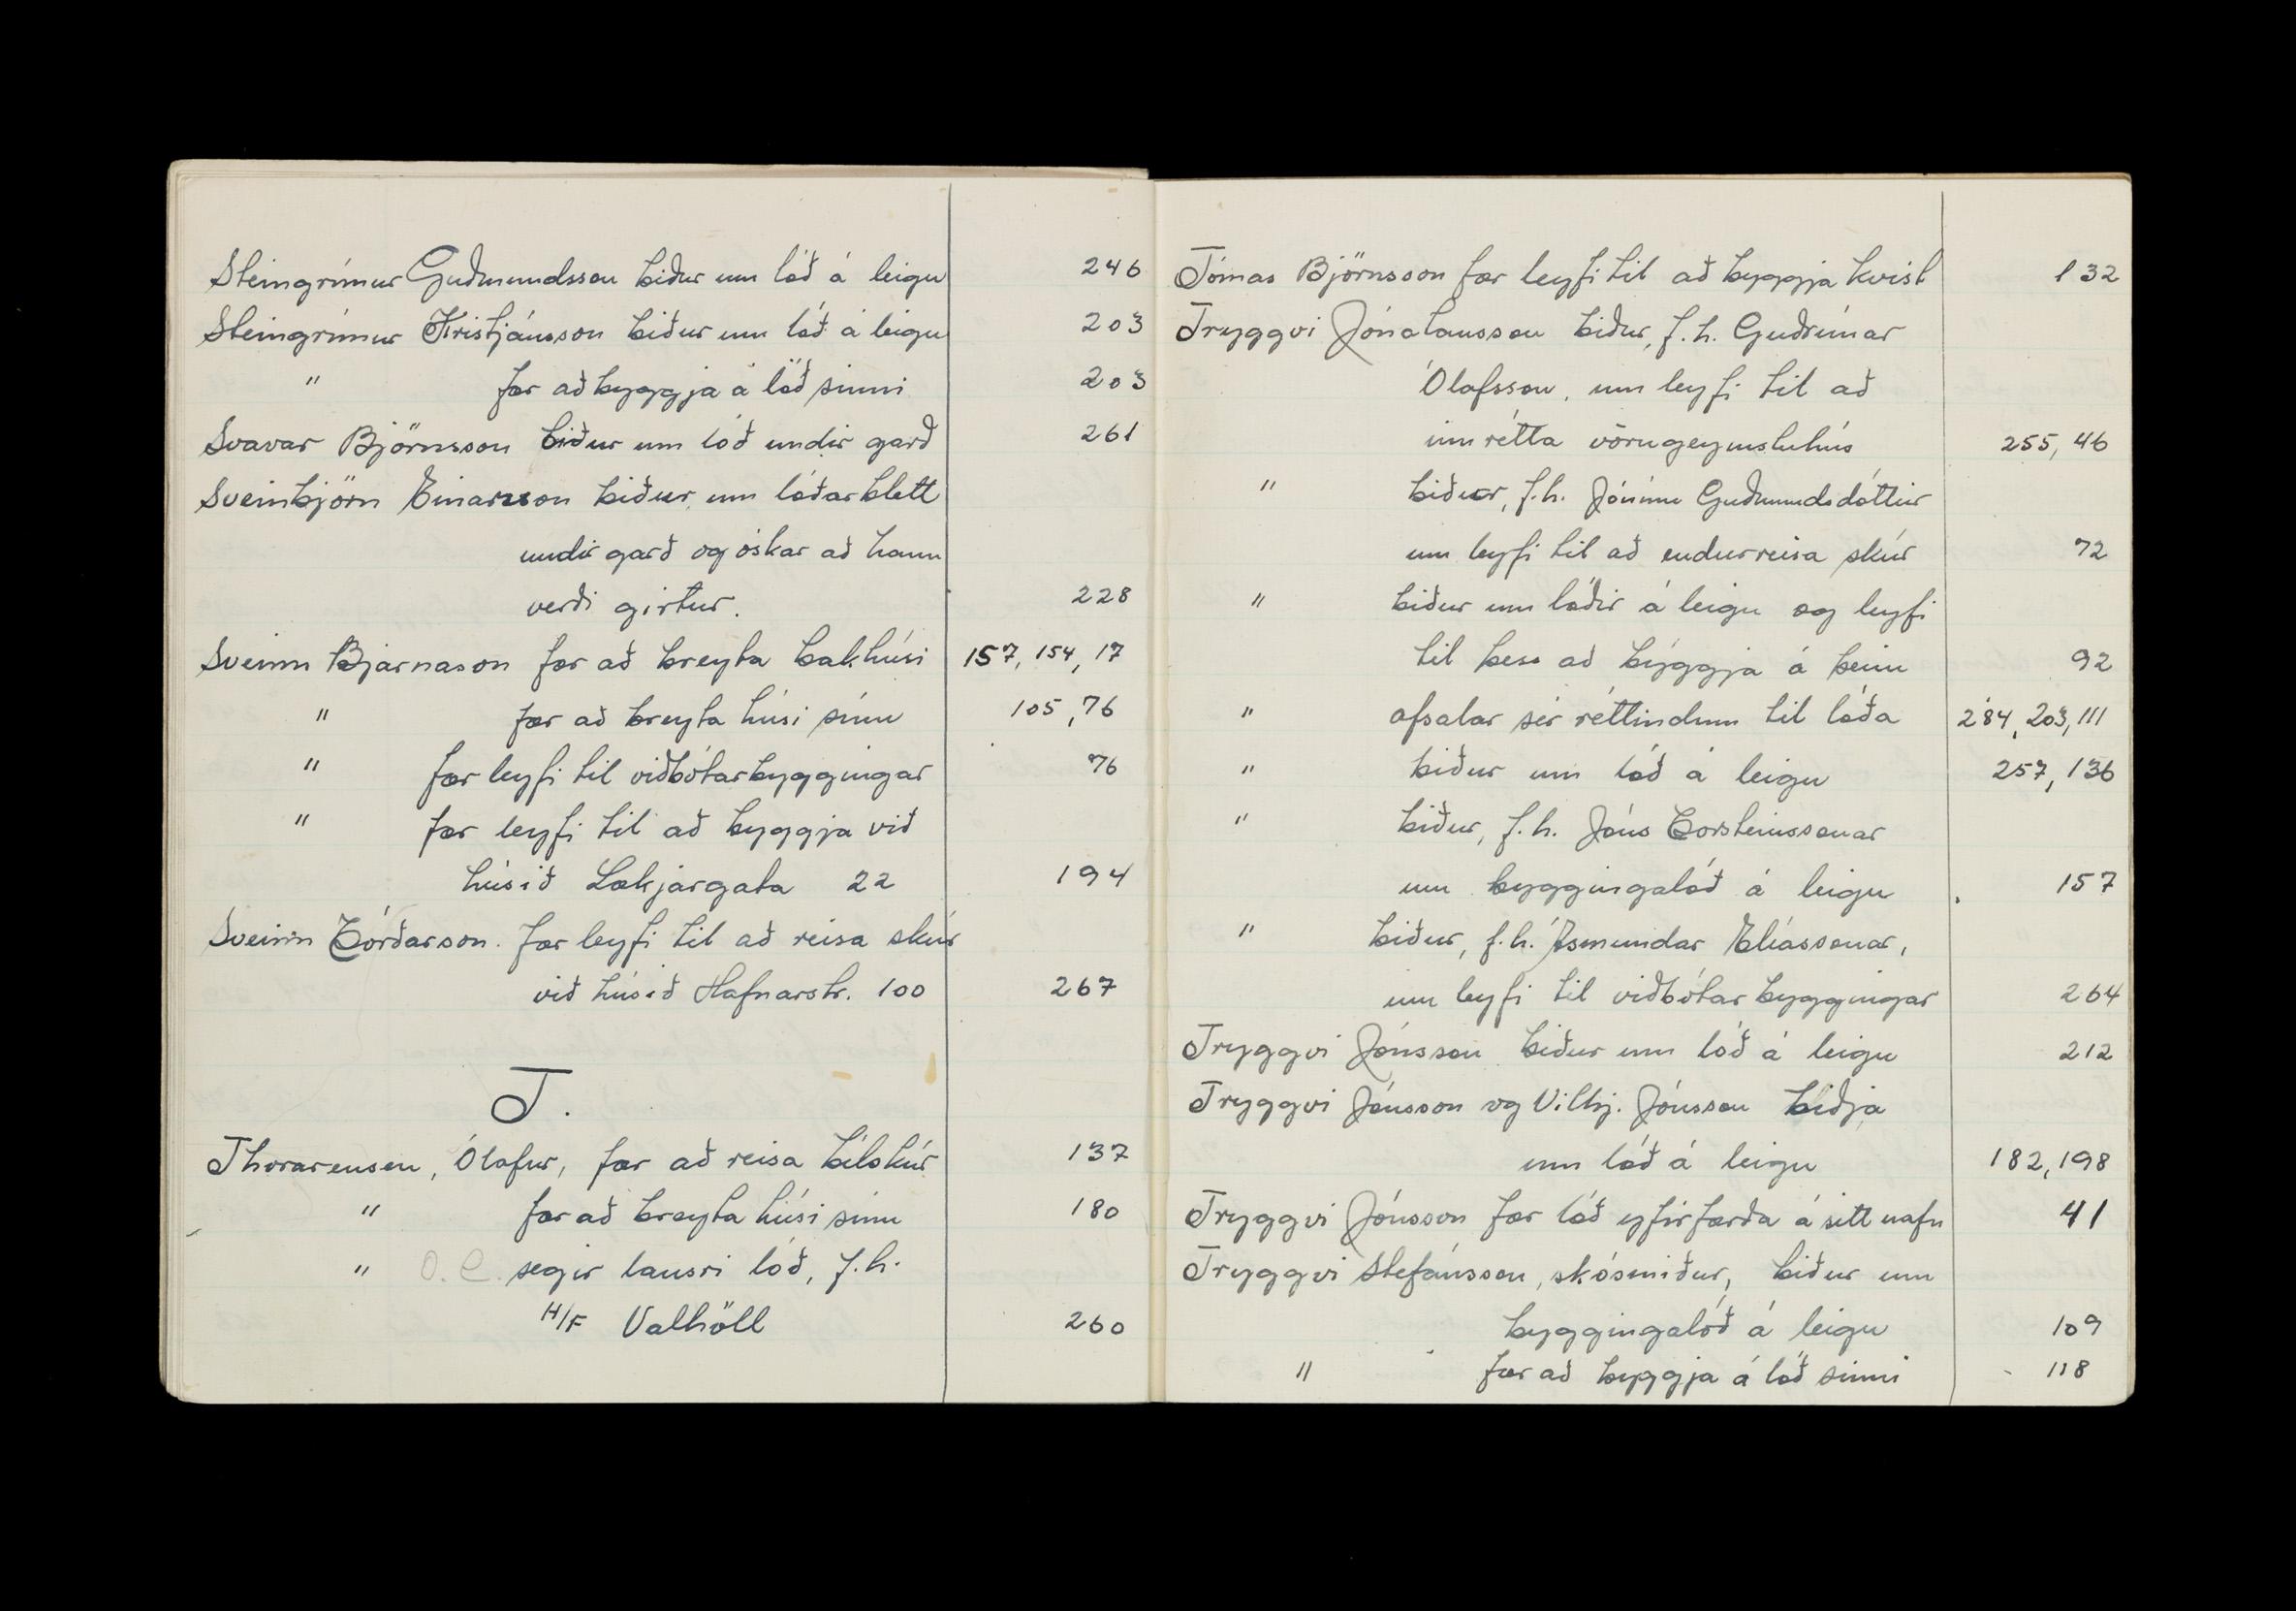 Steingrímur Guðmundsson biður um lóð á leigu 246
Steingrímur Kristjánsson biður um lóð á leigu 203
" fær að byggja á lóð sinni 203
Svavar Björnsson biður um lóð undir garð 261
Sveinbjörn Einarsson biður um lóðarblett
undir garð og óskar að hann
verði girtur. 228
Sveinn Bjarnason fær að breyta bakhúsi 157, 154, 17
" fær að breyta húsi sínu 105, 76
" fær leyfi til viðbótarbyggingar 76
" fær leyfi til að byggja við
húsið Lækjargata 22 194
Sveinn Þórðarson. fær leyfi til að reisa skúr
við húsið Hafnarstr. 100 267
T.
Thorarensen, Ólafur, fær að reisa bílskúr 137
" fær að breyta húsi sínu 180
" O. C. segir lausri lóð, f.h.
H/F Valhöll 260
Tómas Björnsson fær leyfi til að byggja kvist 132
Tryggvi Jónatansson biður, f.h. Guðrúnar
Ólafsson, um leyfi til að
innrétta vörugeymsluhús 255, 46
" biður, f.h. Jónínu Guðmundsdóttir
um leyfi til að endurreisa skúr 72
" biður um lóðir á leigu og leyfi
til þess að byggja á þeim 92
" afsalar sér réttindum til lóða 284, 203, 111
" biður um lóð á leigu 257, 136
" biður, f.h. Jóns Þorsteinssonar
um byggingalóð á leigu 157
" biður, f.h. Ásmundar Elíassonar,
um leyfi til viðbótarbyggingar 264
Tryggvi Jónsson biður um lóð á leigu 212
Tryggvi Jónsson og Vilhj. Jónsson biðja
um lóð á leigu 182, 198
Tryggvi Jónsson fær lóð yfirfærða á sitt nafn 41
Tryggvi Stefánsson, skósmiður, biður um
byggingalóð á leigu 109
" fær að byggja á lóð sinni 118